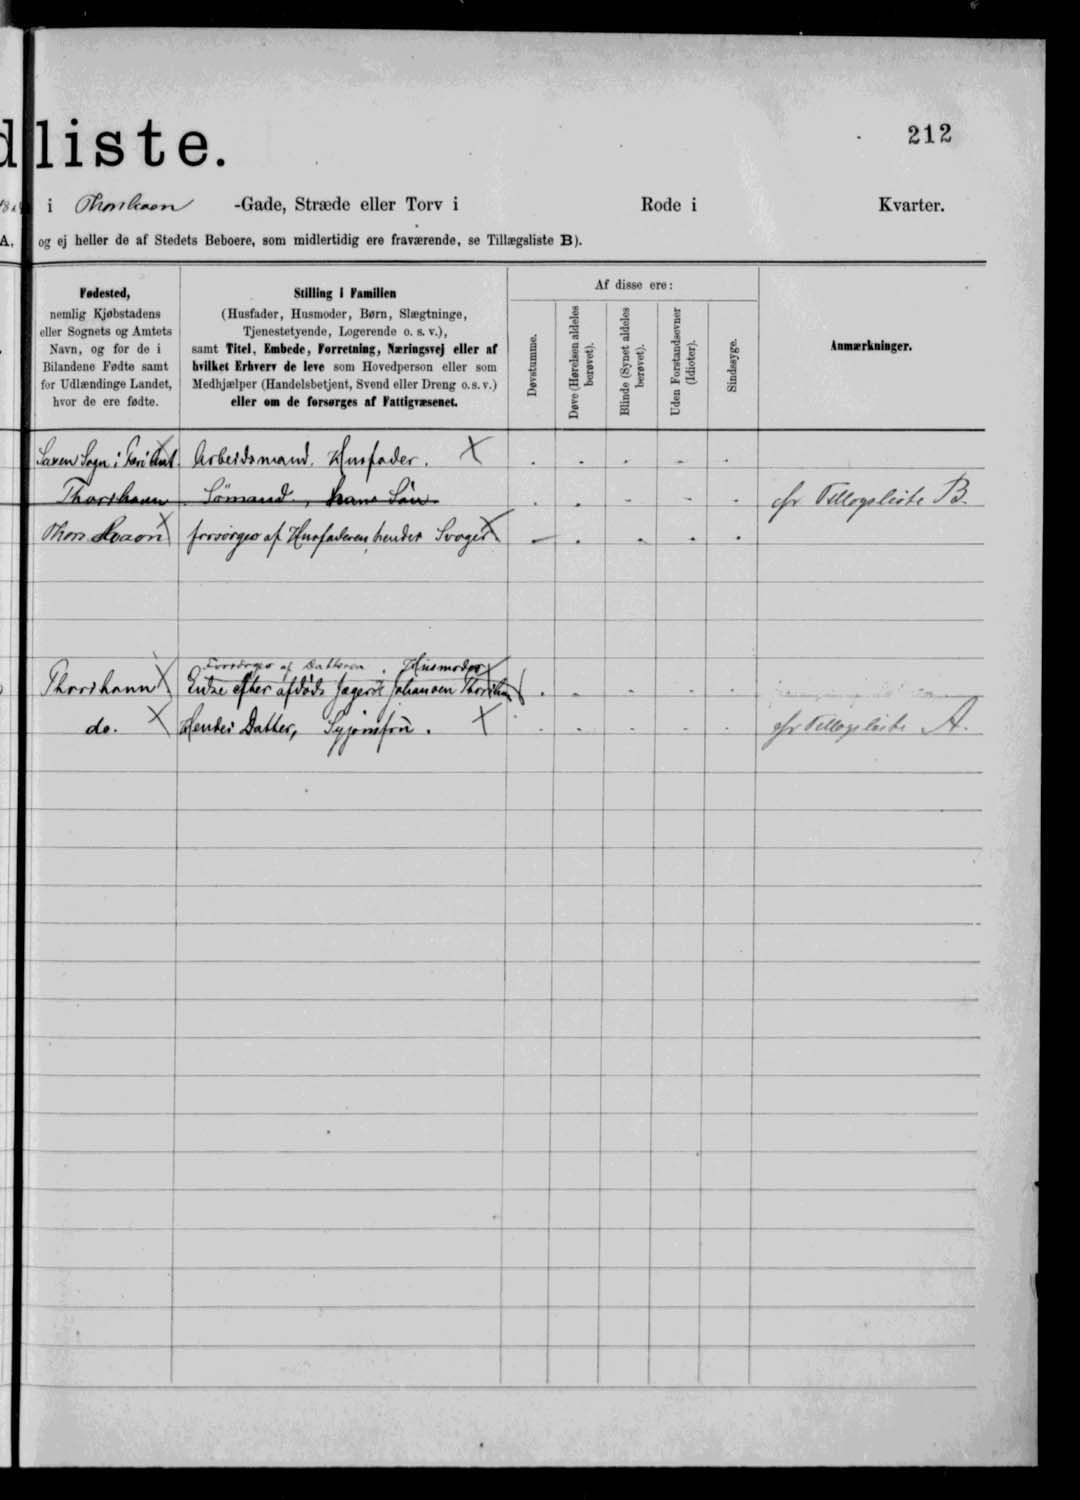 dliste.
212
i Thorshavn -Gade, Stræde eller Torv i Rode i Kvarter.
A. og ej heller de af Stedets Beboere, som midlertidig ere fraværende, se Tillægsliste B).
Fødested,
nemlig Kjøbstadens
eller Sognets og Amtets
Navn, og for de i
Bilandene Fødte samt
for Udlændinge Landet,
hvor de ere fødte.
Stilling i Familien
(Husfader, Husmoder, Børn, Slægtninge,
Tjenestetyende, Logerende o. s. v.),
samt Titel, Embede, Forretning, Næringsvej eller af
hvilket Erhverv de leve som Hovedperson eller som
Medhjælper (Handelsbetjent, Svend eller Dreng o.s.v.)
eller om de forsørges af Fattigvæsenet.
Af disse ere:
Døvstumme.
Døve (Hørelsen aldeles
berøvet).
Blinde (Synet aldeles
berøvet).
Uden Forstandsevner
(Idioter).
Sindssyge.
Anmærkninger.
Saxen Sogn i Færi Amt. Arbeidsmand. Husfader.
Thorshavn Sømand, hans Søn cfr Tillægsliste B.
Thorshavn forsørges af Husfaderen, hendes Svoger
Forsørges af Datteren. Husmoder
Thorshavn Enke efter afdøde Jagert Johansen Thorshavn
do. Hendes Datter, Syjomfru. cfr Tillægsliste A.